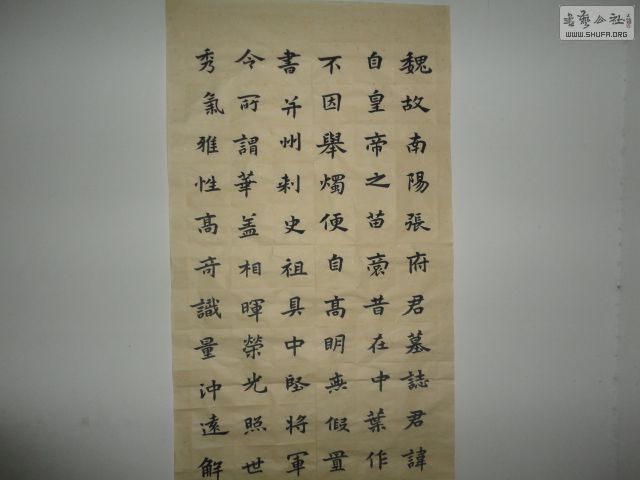 魏故南陽張府君墓誌君諱
自皇帝之苗裔昔在中葉作
不因舉燭便自髙明無假置
書并州刺史祖具中堅將軍
令所謂華盖相暉榮光照世
秀氣雅性髙竒識量沖遠解
書藝公社
WWW.SHUFA.ORG